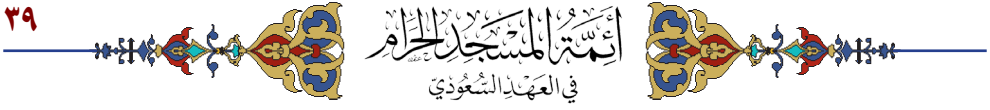 ٣٩
أَئِمَّةُ المَسْجِدِ الحَرَامِ
فِي العَهْدِ السُّعُودِيّ